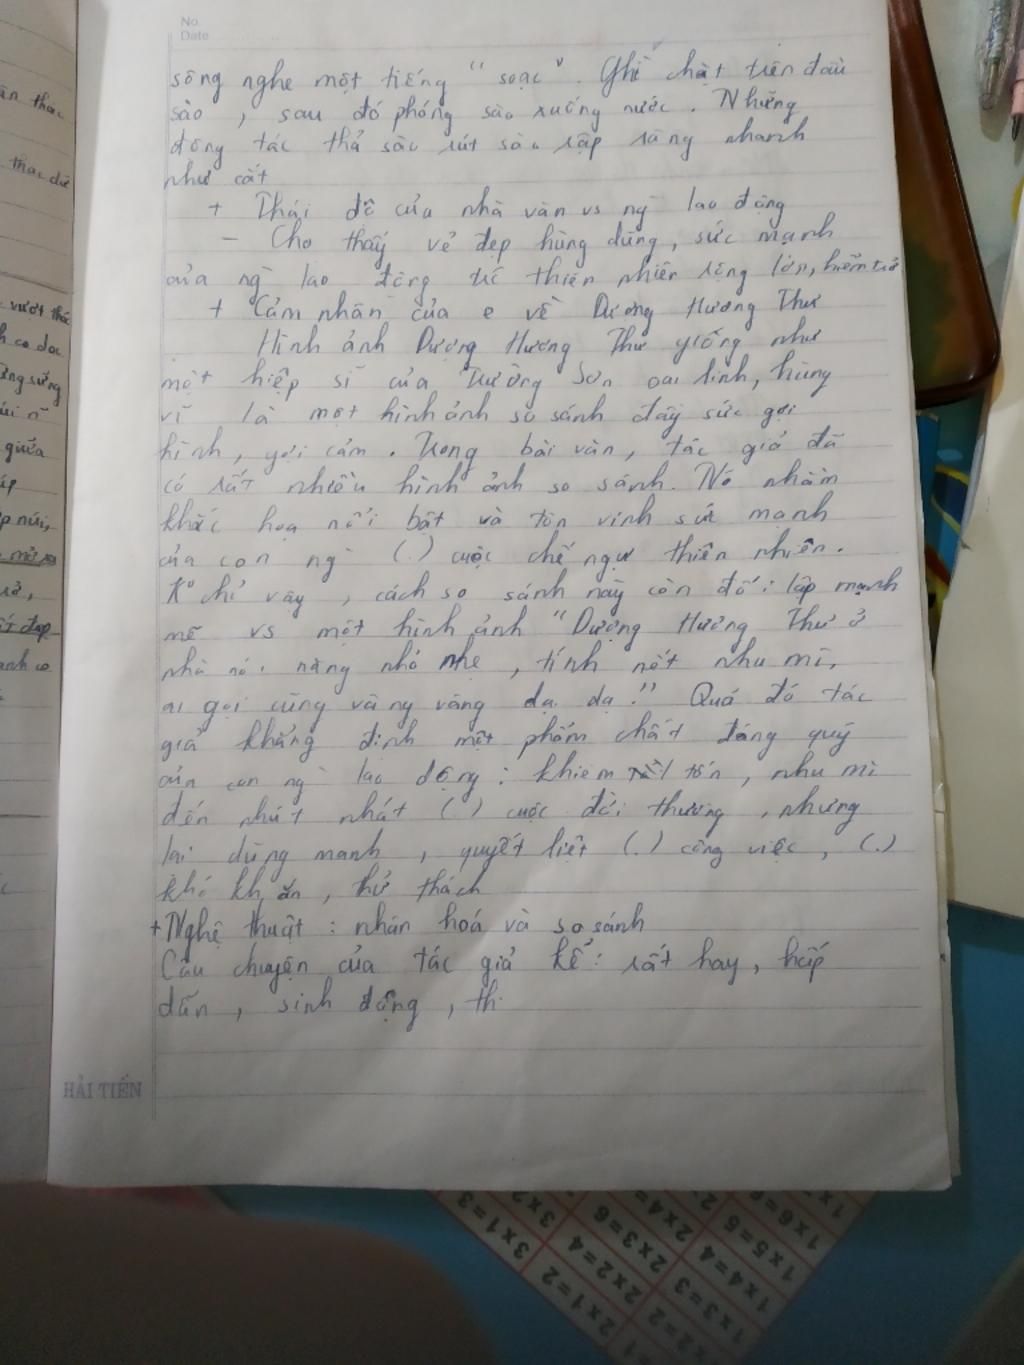 No.
Date
sông nghe một tiếng "soạc". Ghì chặt trên đầu
sào, sau đó phóng sào xuống nước. Những
động tác thả sào rút sào rập ràng nhanh
như cắt
+ Thái độ của nhà văn vs ng` lao động
- Cho thấy vẻ đẹp hùng dũng, sức mạnh
của ng` lao động thiên nhiên rộng lớn, hiểm trở
+ Cảm nhận của e về Dượng Hương Thư
Hình ảnh Dượng Hương Thư giống như
một hiệp sĩ của Trường Sơn oai linh, hùng
vĩ là một hình ảnh so sánh đầy sức gợi
hình, gợi cảm. Trong bài văn, tác giả đã
có rất nhiều hình ảnh so sánh. Nó nhằm
khắc hoạ nổi bật và tôn vinh sức mạnh
của con ng` (.) cuộc chế ngự thiên nhiên.
K° chỉ vậy, cách so sánh này còn đối lập mạnh
mẽ vs một hình ảnh "Dượng Hương Thư ở
nhà nói năng nhỏ nhẹ, tính nết nhu mì,
ai gọi cũng vâng vâng dạ dạ". Quá đó tác
giả khẳng định một phẩm chất đáng quý
của con ng` lao động: khiêm tốn, nhu mì
đến nhút nhát (.) cuộc đời thường, nhưng
lại dũng mãnh, quyết liệt (.) công việc, (.)
khó khăn, thử thách
+ Nghệ thuật: nhân hoá và so sánh
Câu chuyện của tác giả kể: rất hay, hấp
dẫn, sinh động, th
HẢI TIẾN
ân thác
thác dữ
vượt thác
giữa
núi,
3x1=3
2x1=2
2x2=4
2x3=6
2x4=
1x2=2
1x3=3
1x4=4
1x5=5
1x6=6